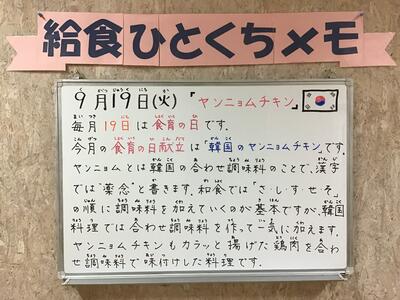 給食ひとくちメモ
9月19日(火)「ヤンニョムチキン」
毎月19日は食育の日です。
今月の食育の日献立は「韓国のヤンニョムチキン」です。
ヤンニョムとは韓国の合わせ調味料のことで、漢字
では"薬念"と書きます。和食では「さ・し・す・せ・そ」
の順に調味料を加えていくのが基本ですが、韓国
料理では合わせ調味料を作って一気に加えます。
ヤンニョムチキンもカラッと揚げた鶏肉を合わ
せ調味料で味付けした料理です。